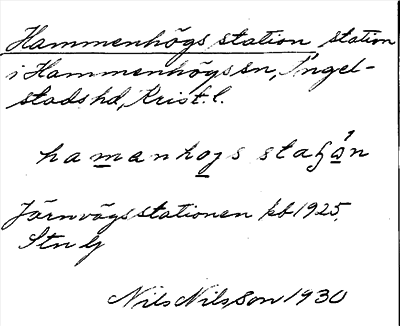 Hammenhögs station station
i Hammenhögs sn, Ingel-
stads hd, Krist. l.
hamanhogs staʃån
Järnvägsstationen kb 1925.
Stn lj
Nils Nilsson 1930